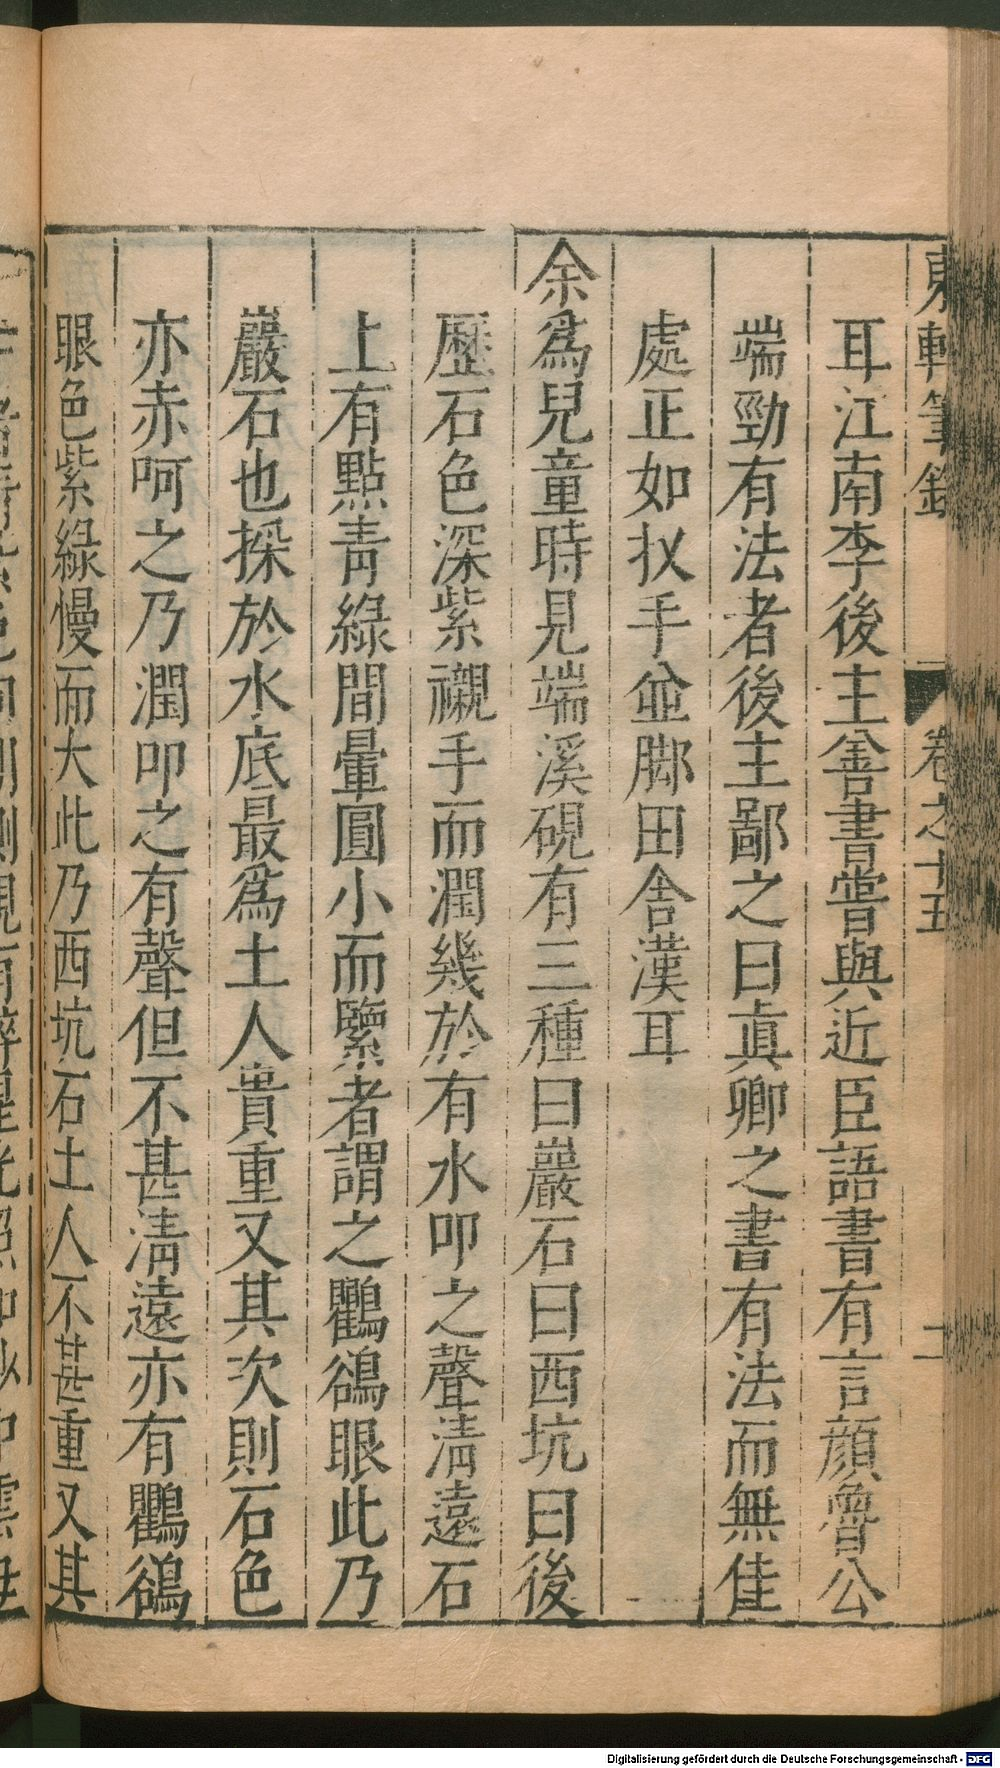 東軒筆錄 卷之十五
耳江南李後主善書嘗與近臣語書有言顏魯公
端勁有法者後主鄙之曰眞卿之書有法而無佳
處正如扠手並脚田舎漢耳
余爲兒童時見端溪硯有三種曰巖石曰西坑曰後
歷石色深紫襯手而潤幾於有水叩之聲淸遠石
上有點靑綠間暈圓小而鑒者謂之鸜鵒眼此乃
巖石也採於水底最爲土人貴重又其次則石色
亦赤呵之乃潤叩之有聲但不甚淸遠亦有鸜鵒
眼色紫綠慢而大此乃西坑石土人不甚重又其
Digitalisierung gefördert durch die Deutsche Forschungsgemeinschaft - DFG